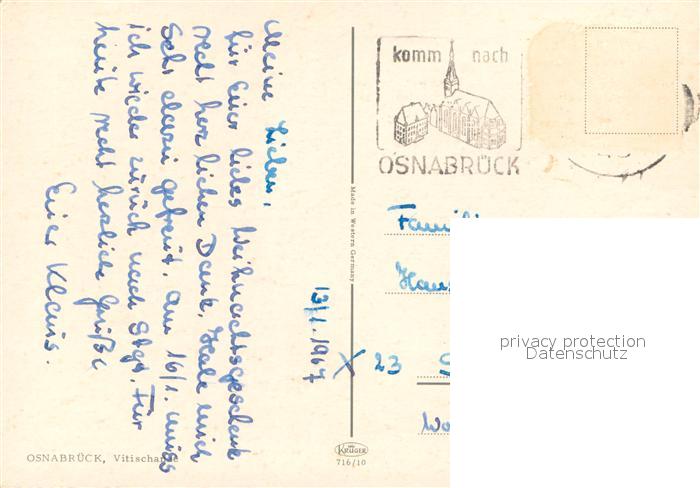 Meine Lieben,
für Euer liebes Weihnachtsgeschenk
recht herzlichen Dank, Habe mich
sehr darüber gefreut. Am 16/1. muss
ich wieder zurück nach Stgt. Für
heute recht herzliche Grüße
Euer Klaus.
OSNABRÜCK, Vitischanze
Made in Western Germany
KRÜGER
716/10
13/1. 1967
komm nach
OSNABRÜCK
Famili
Haus
X 23 S
Wo
privacy protection
Datenschutz